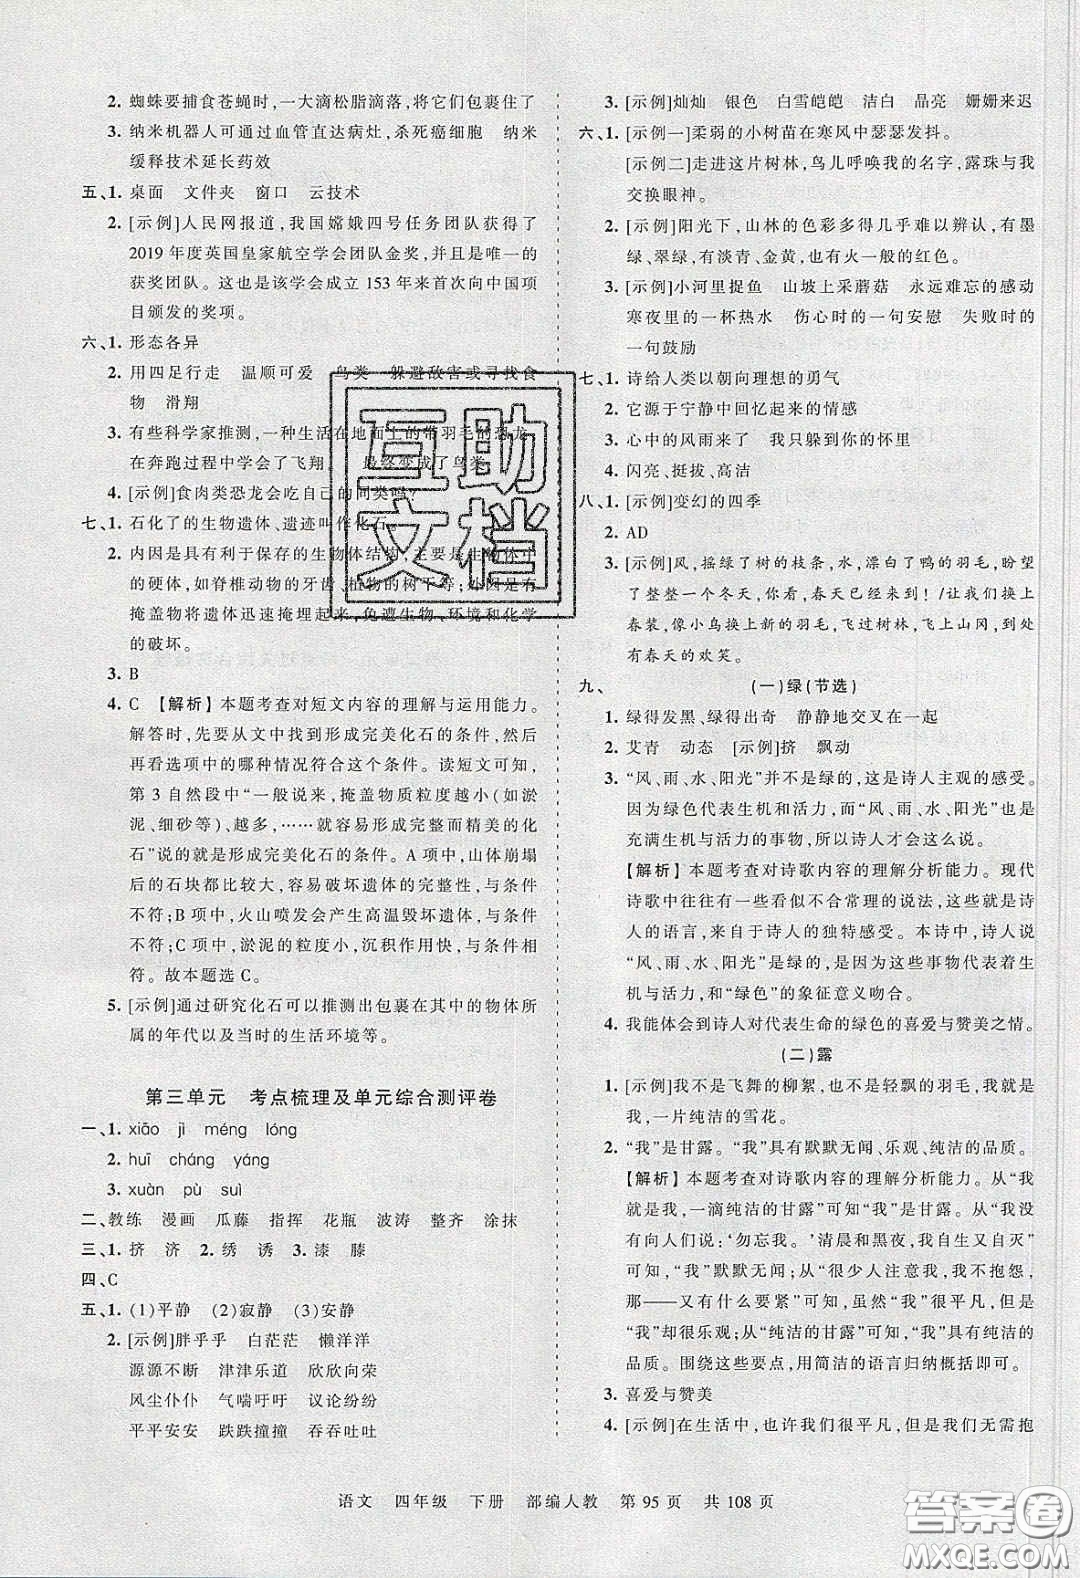 2. 蜘蛛要捕食苍蝇时,一大滴松脂滴落,将它们包裹住了
3. 纳米机器人可通过血管直达病灶,杀死癌细胞　纳米
缓释技术延长药效
五、1. 桌面　文件夹　窗口　云技术
2. [示例]人民网报道,我国嫦娥四号任务团队获得了
2019 年度英国皇家航空学会团队金奖,并且是唯一的
获奖团队。这也是该学会成立 153 年来首次向中国项
目颁发的奖项。
六、1. 形态各异
2. 用四足行走　温顺可爱　鸟类　躲避敌害或寻找食
物　滑翔
3. 有些科学家推测,一种生活在地面上的带羽毛的恐龙,
在奔跑过程中学会了飞翔　最终变成了鸟类
4. [示例]食肉类恐龙会吃自己的同类吗?
七、1. 石化了的生物遗体、遗迹叫作化石。
2. 内因是具有利于保存的生物体结构,主要是生物体中
的硬体,如脊椎动物的牙齿、植物的树干等;外因是有
掩盖物将遗体迅速掩埋起来,免遭生物、环境和化学
的破坏。
3. B
4. C 【解析】本题考查对短文内容的理解与运用能力。
解答时,先要从文中找到形成完美化石的条件,然后
再看选项中的哪种情况符合这个条件。读短文可知,
第 3 自然段中“一般说来,掩盖物质粒度越小(如淤
泥、细砂等)、越多,……就容易形成完整而精美的化
石”说的就是形成完美化石的条件。A 项中,山体崩塌
后的石块都比较大,容易破坏遗体的完整性,与条件
不符;B 项中,火山喷发会产生高温毁坏遗体,与条件
不符;C 项中,淤泥的粒度小,沉积作用快,与条件相
符。故本题选 C。
5. [示例]通过研究化石可以推测出包裹在其中的物体所
属的年代以及当时的生活环境等。
第三单元　考点梳理及单元综合测评卷
一、1. xiāo　jì　méng　lóng
2. huī　cháng　yáng
3. xuàn　pù　suì
二、教练　漫画　瓜藤　指挥　花瓶　波涛　整齐　涂抹
三、1. 挤　济　2. 绣　诱　3. 漆　膝
四、C
五、1. (1)平静　(2)寂静　(3)安静
2. [示例]胖乎乎　白茫茫　懒洋洋
源源不断　津津乐道　欣欣向荣
风尘仆仆　气喘吁吁　议论纷纷
平平安安　跌跌撞撞　吞吞吐吐
3. [示例]灿灿　银色　白雪皑皑　洁白　晶亮　姗姗来迟
六、1. [示例一]柔弱的小树苗在寒风中瑟瑟发抖。
[示例二]走进这片树林,鸟儿呼唤我的名字,露珠与我
交换眼神。
2. [示例]阳光下,山林的色彩多得几乎难以辨认,有墨
绿、翠绿,有淡青、金黄,也有火一般的红色。
3. [示例]小河里捉鱼　山坡上采蘑菇　永远难忘的感动
寒夜里的一杯热水　伤心时的一句安慰　失败时的
一句鼓励
七、1. 诗给人类以朝向理想的勇气
2. 它源于宁静中回忆起来的情感
3. 心中的风雨来了　我只躲到你的怀里
4. 闪亮、挺拔、高洁
八、1. [示例]变幻的四季
2. AD
3. [示例]风,摇绿了树的枝条,水,漂白了鸭的羽毛,盼望
了整整一个冬天,你看,春天已经来到! /让我们换上
春装,像小鸟换上新的羽毛,飞过树林,飞上山岗,到处
有春天的欢笑。
九、　(一)绿(节选)
1. 绿得发黑、绿得出奇　静静地交叉在一起
2. 艾青　动态　[示例]挤　飘动
3. “风、雨、水、阳光”并不是绿的,这是诗人主观的感受。
因为绿色代表生机和活力,而“风、雨、水、阳光”也是
充满生机与活力的事物,所以诗人才会这么说。
【解析】本题考查对诗歌内容的理解分析能力。现代
诗歌中往往有一些看似不合常理的说法,这些是诗
人的语言,来自于诗人的独特感受。本诗中,诗人说
“风、雨、水、阳光”是绿的,是因为这些事物代表着生
机与活力,和“绿色”的象征意义吻合。
4. 我能体会到诗人对代表生命的绿色的喜爱与赞美之情。
(二)露
1. [示例]我不是飞舞的柳絮,不是轻飘的羽毛,我就是
我,一片纯洁的雪花。
2. “我”是甘露。“我”具有默默无闻、乐观、纯洁的品质。
【解析】本题考查对诗歌内容的理解分析能力。从“我
就是我,一滴纯洁的甘露”可知,“我”是甘露。从“我没
有向人们说:‘勿忘我。’清晨和黑夜,我自生又自灭”
可知,“我”默默无闻;从“很少人注意我,我不抱怨,
那——又有什么要紧”可知,虽然“我”很平凡,但“我”
却很乐观;从“纯洁的甘露”可知,“我”具有纯洁的
品质。围绕这些要点,用简洁的语言归纳概括即可。
3. 喜爱与赞美
4. [示例]在生活中,也许我们很平凡,但我们无需抱
语文　四年级　下册　部编人教　第 95 页　共 108 页
互助
文档
答案圈
MXQE.COM